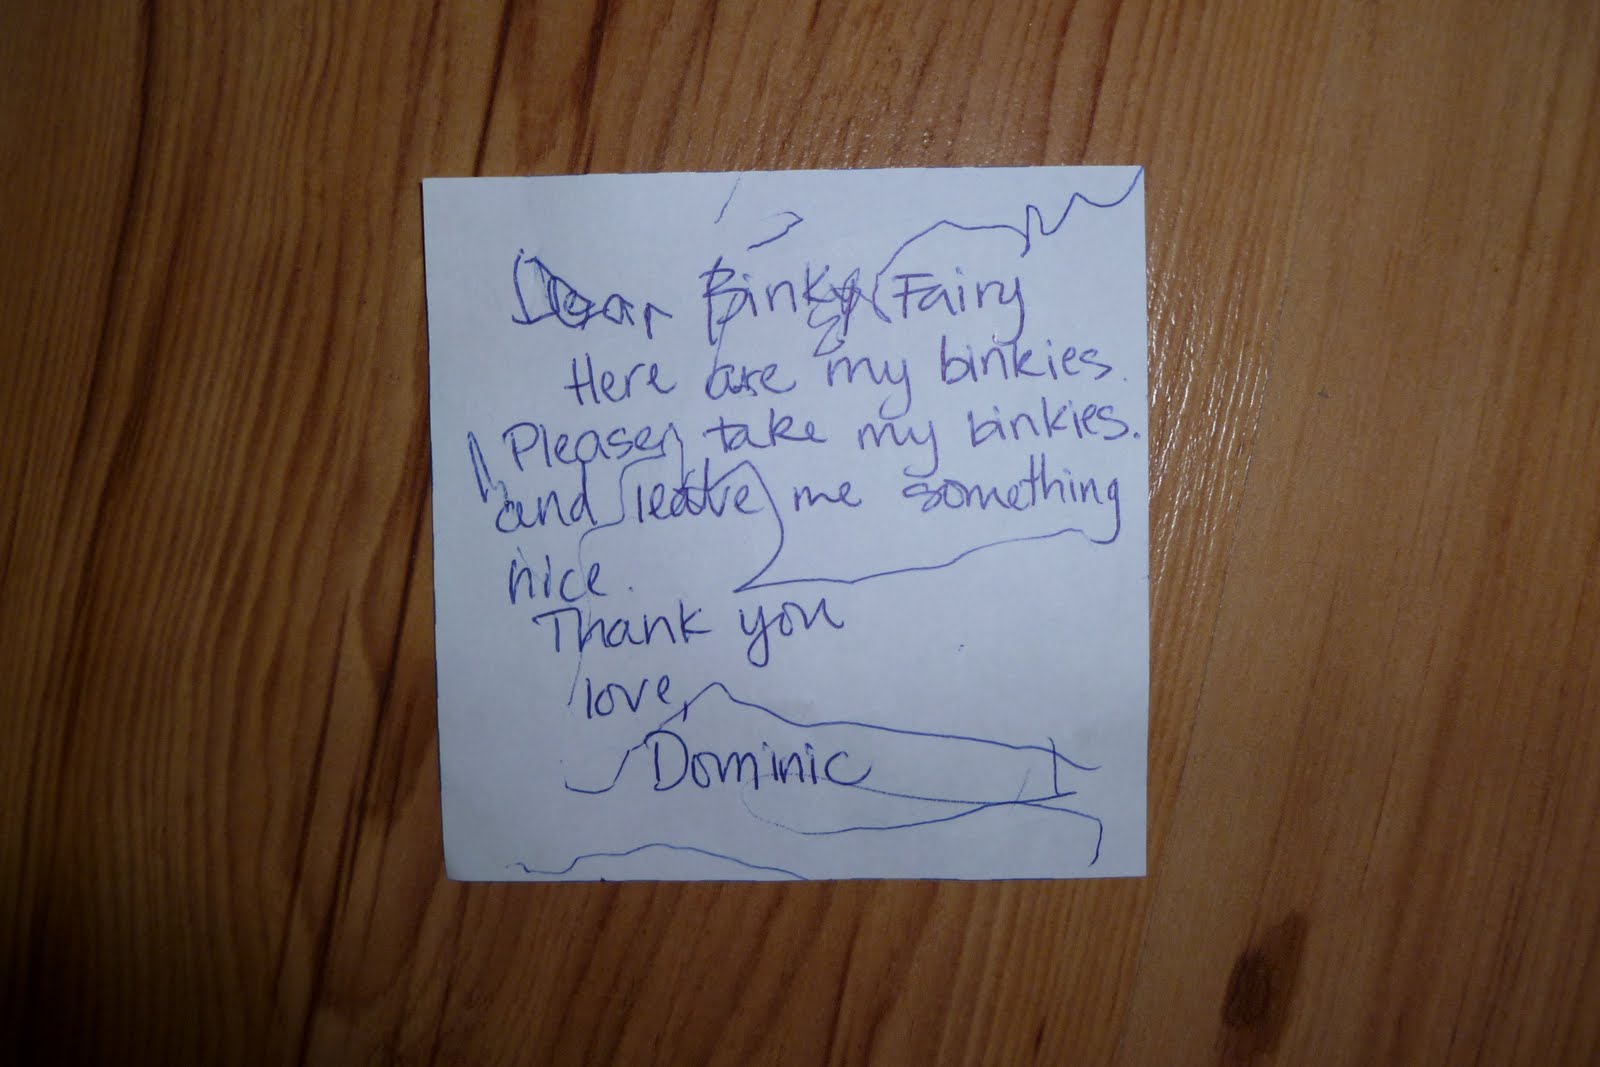 Dear Binky Fairy
Here are my binkies.
Please take my binkies.
and leave me something
nice.
Thank you
love,
Dominic